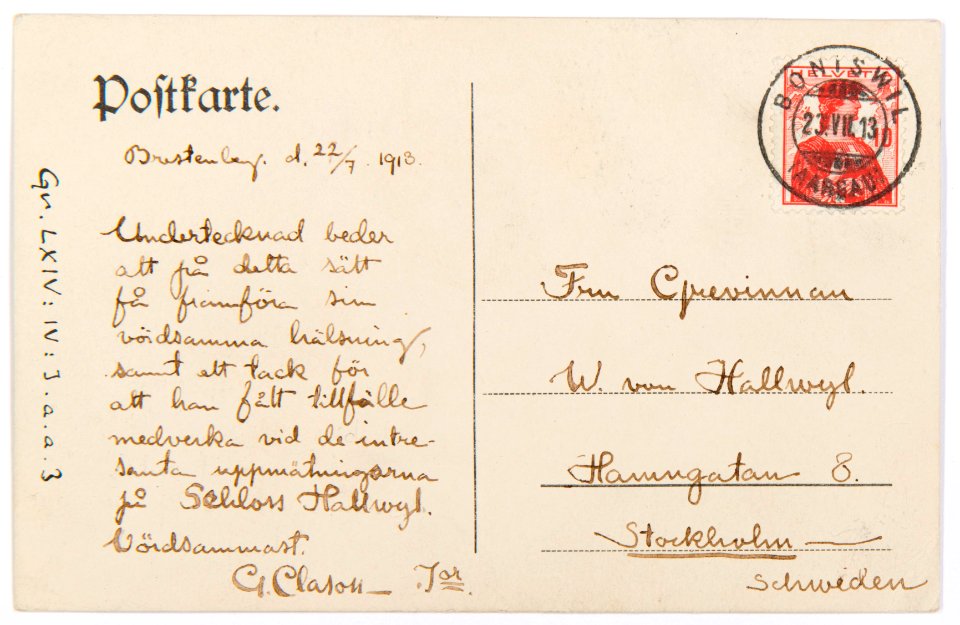 Postkarte.
Brestenberg. d. 22/7. 1913.
Undertecknad beder
att på detta sätt
få framföra sin
vördsamma hälsning,
samt ett tack för
att han fått tillfälle
medverka vid de intre-
santa uppmätningarna
på Schloss Hallwyl.
Vördsammast.
G. Clason Jor.
Gr. LXIV: IV: J. a. a. 3
BONISWIL
23.VII.13
(AARGAU)
HELVETIA
10
Fru Grevinnan
W. von Hallwyl.
Hamngatan 8.
Stockholm
Schweden